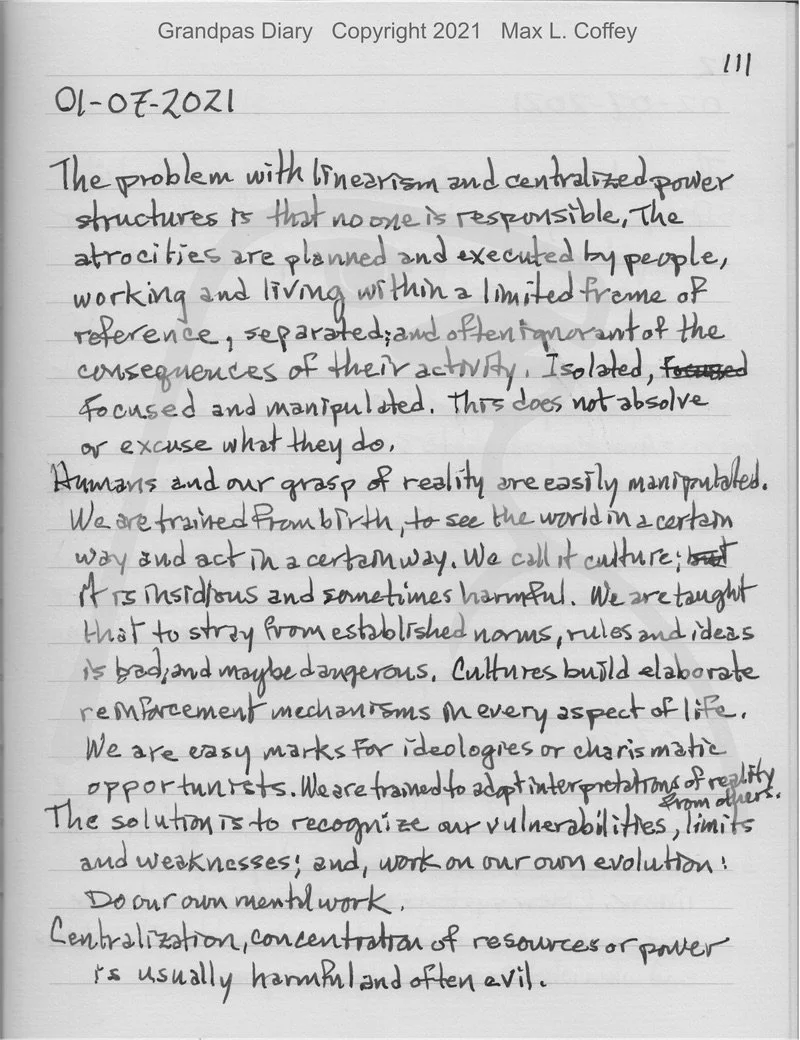 Grandpas Diary Copyright 2021 Max L. Coffey
111
01-07-2021
The problem with linearism and centralized power
structures is that no one is responsible, The
atrocities are planned and executed by people,
working and living within a limited frame of
reference, separated; and often ignorant of the
consequences of their activity. Isolated, focused
focused and manipulated. This does not absolve
or excuse what they do.
Humans and our grasp of reality are easily manipulated.
We are trained from birth, to see the world in a certain
way and act in a certain way. We call it culture; but
it is insidious and sometimes harmful. We are taught
that to stray from established norms, rules and ideas
is bad; and maybe dangerous. Cultures build elaborate
reinforcement mechanisms in every aspect of life.
We are easy marks for ideologies or charismatic
opportunists. We are trained to adopt interpretations of reality
from others.
The solution is to recognize our vulnerabilities, limits
and weaknesses; and, work on our own evolution:
Do our own mental work.
Centralization, concentration of resources or power
is usually harmful and often evil.